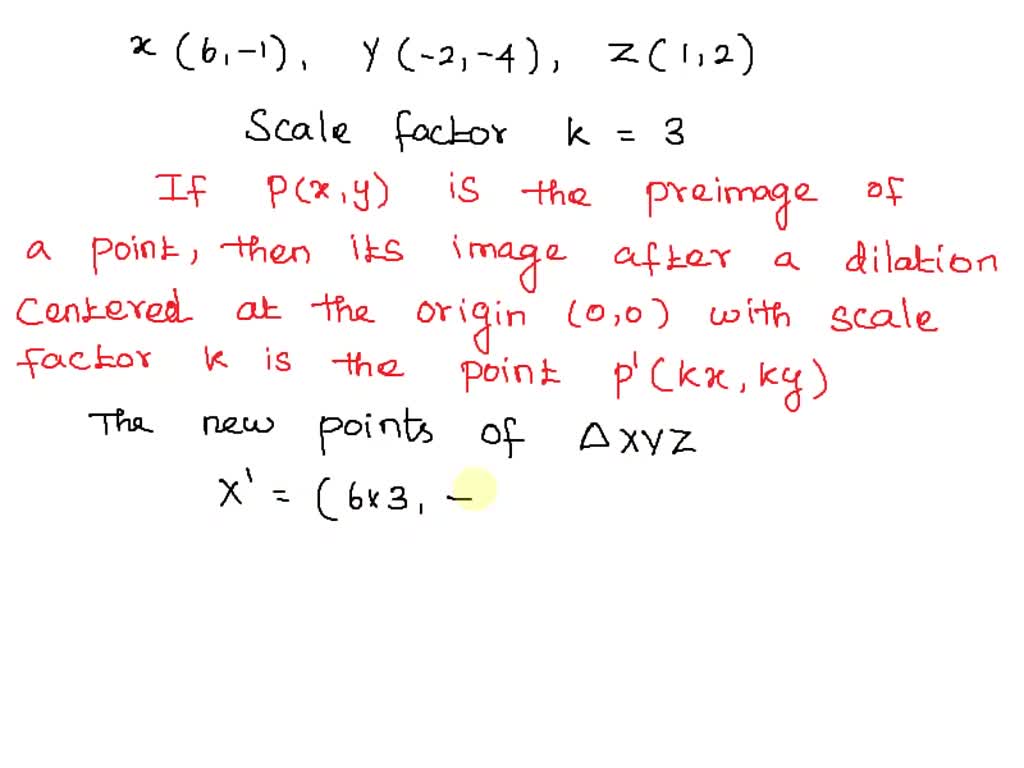 x (6, -1), Y (-2, -4), Z (1, 2)
Scale factor k = 3
If P(x, y) is the preimage of
a point, then its image after a dilation
centered at the origin (0,0) with scale
factor k is the point p'(kx, ky)
The new points of ΔXYZ
X' = (6×3, -